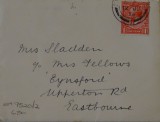 Mrs Sladden
c/o Mrs Fellows
"Eynsford"
Upperton Rd
Eastbourne